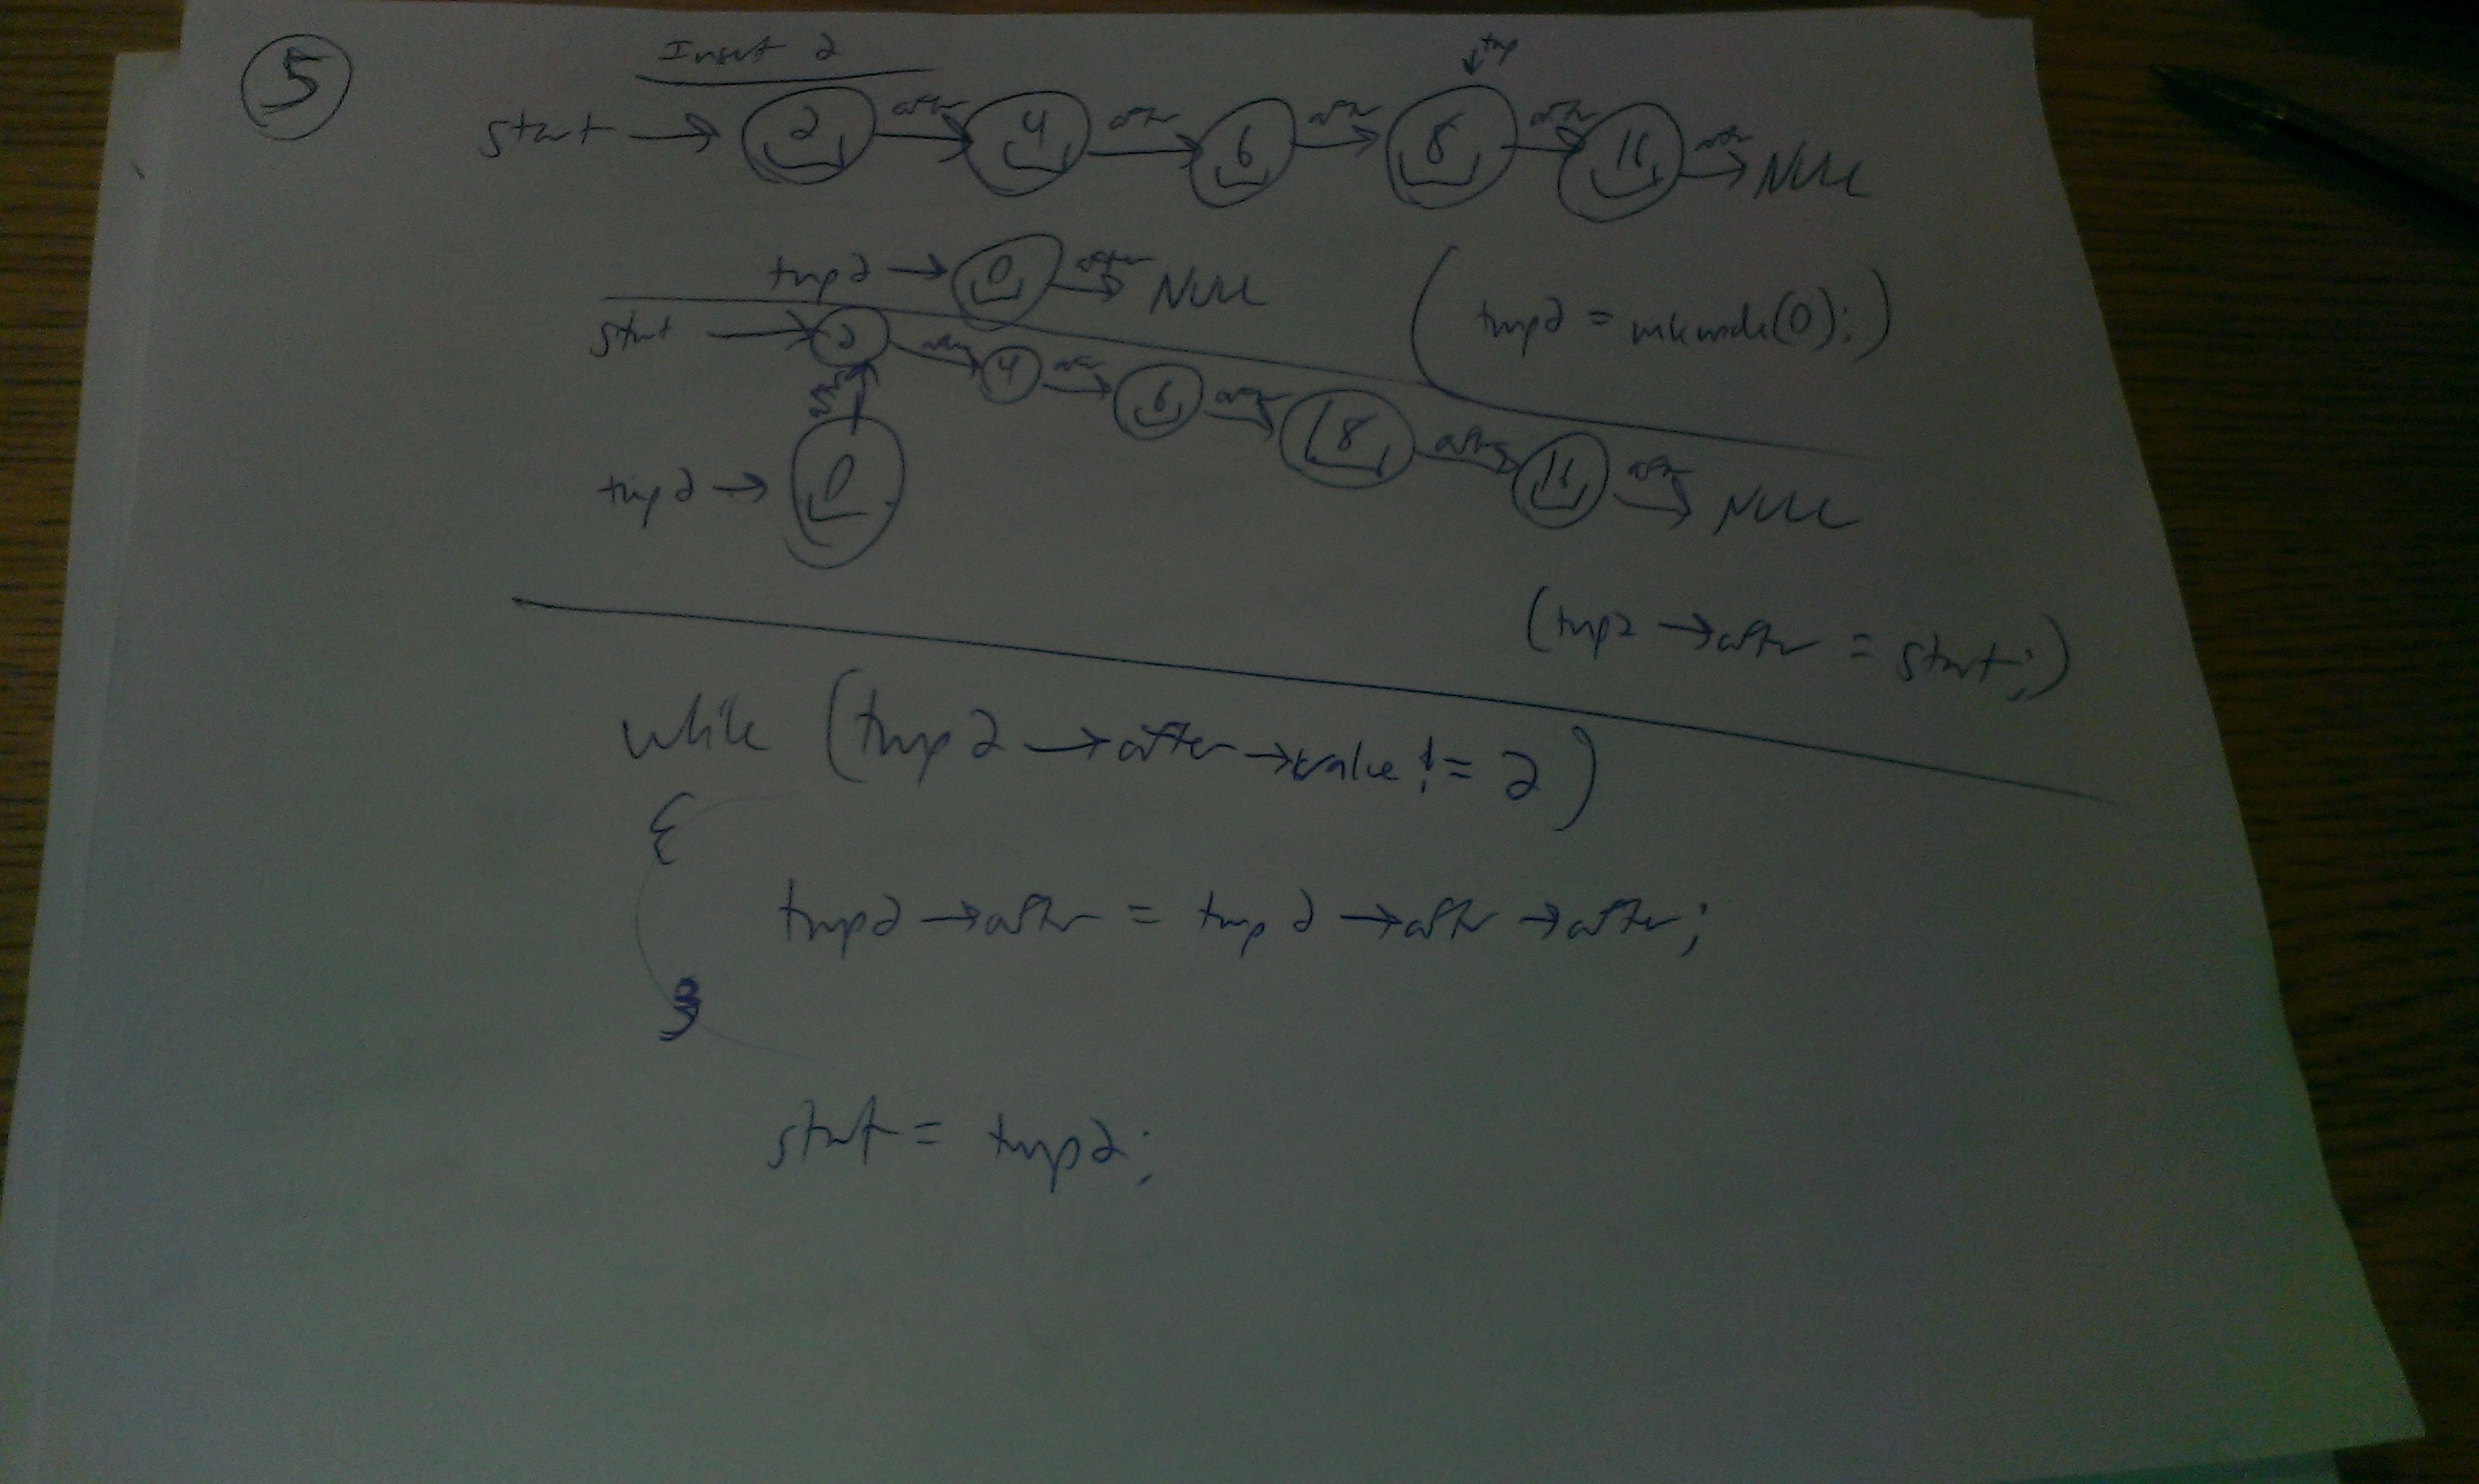 5
Insert 2
tmp
start → 2 after → 4 after → 6 after → 8 after → 11 after → NULL
tmp2 → 0 after → NULL
(tmp2 = mknode(0);)
start → 2 after → 4 after → 6 after → 8 after → 11 after → NULL
after
tmp2 → 0
(tmp2 → after = start;)
while (tmp2 → after → value != 2)
{
tmp2 → after = tmp2 → after → after;
}
start = tmp2;